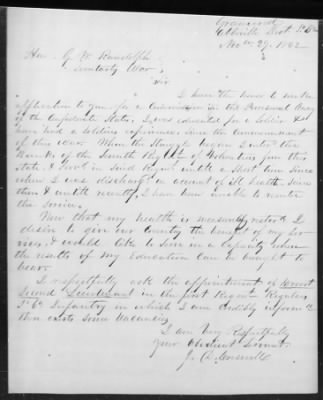 Abbeville Dist So Ca
Nov 29, 1862
Hon. G. W. Randolph
Secretary War,
Sir
I have the honor to make
application to you for a Commission in the Provisional Army
of the Confederate States. I was educated for a Soldier &
have had a Soldiers experience since the commencement
of the war. When the Struggle began I enter the
Ranks of the Seventh Regt of Volunteers from this
State, & serv'd in said Regmt until a short time since
when I was discharg'd on account of ill health, since
then & until recently, I have been unable to reenter
the service.
Now that my health is measurably restor'd I
desire to give our Country the benefit of my ser-
vices, & would like to serve in a capacity where
the results of my Education can be brought to
bear.
I respectfully ask the appointment of
Second Lieutenant in the first Regmt Regulars
So Ca Infantry in which I am credibly inform'd
there exists some Vacancies
I am Very Respectfully
your Obedient Servant
J.